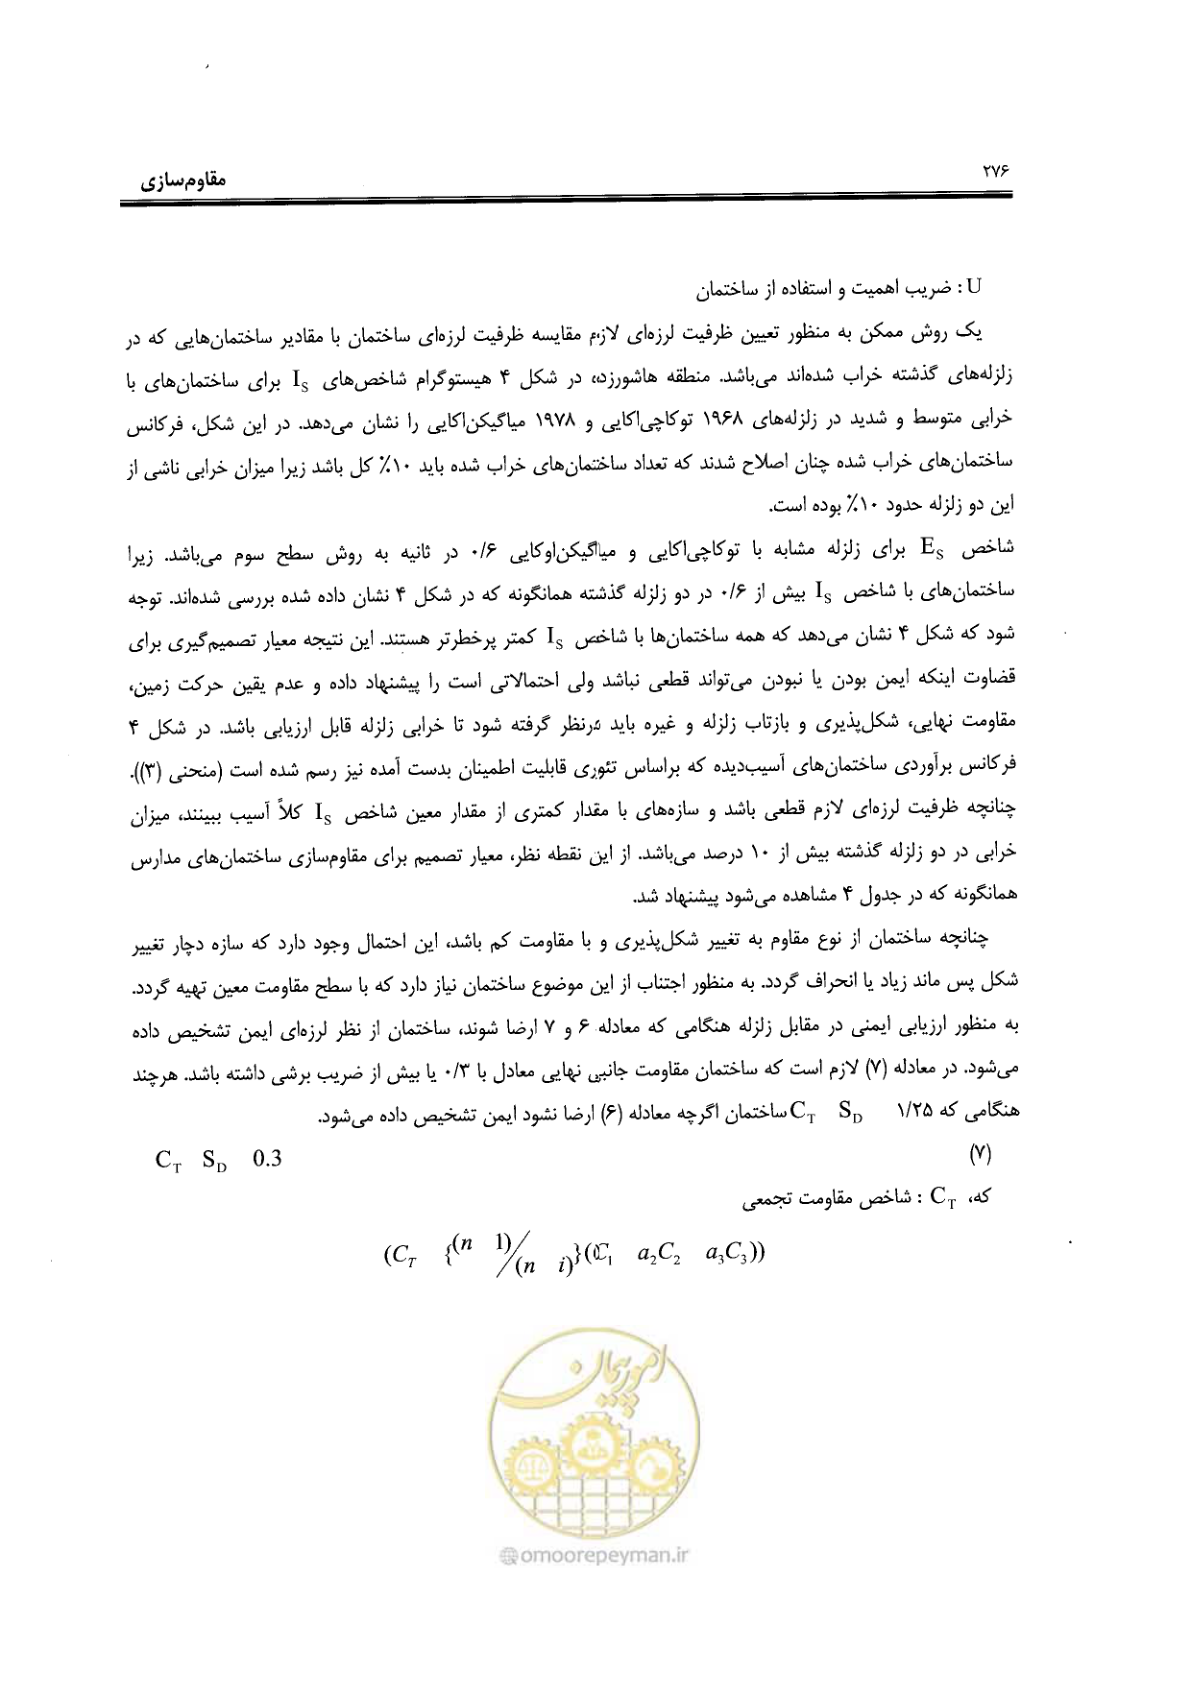 ۲۷۶
مقاوم‌سازی
U : ضریب اهمیت و استفاده از ساختمان
یک روش ممکن به منظور تعیین ظرفیت لرزه‌ای لازم مقایسه ظرفیت لرزه‌ای ساختمان با مقادیر ساختمان‌هایی که در
زلزله‌های گذشته خراب شده‌اند می‌باشد. منطقه هاشورزده، در شکل ۴ هیستوگرام شاخص‌های IS برای ساختمان‌های با
خرابی متوسط و شدید در زلزله‌های ۱۹۶۸ توکاچی‌اکایی و ۱۹۷۸ میاگیکن‌اکایی را نشان می‌دهد. در این شکل، فرکانس
ساختمان‌های خراب شده چنان اصلاح شدند که تعداد ساختمان‌های خراب شده باید ۱۰٪ کل باشد زیرا میزان خرابی ناشی از
این دو زلزله حدود ۱۰٪ بوده است.
شاخص ES برای زلزله مشابه با توکاچی‌اکایی و میاگیکن‌اوکایی ۰/۶ در ثانیه به روش سطح سوم می‌باشد. زیرا
ساختمان‌های با شاخص IS بیش از ۰/۶ در دو زلزله گذشته همانگونه که در شکل ۴ نشان داده شده بررسی شده‌اند. توجه
شود که شکل ۴ نشان می‌دهد که همه ساختمان‌ها با شاخص IS کمتر پرخطرتر هستند. این نتیجه معیار تصمیم‌گیری برای
قضاوت اینکه ایمن بودن یا نبودن می‌تواند قطعی نباشد ولی احتمالاتی است را پیشنهاد داده و عدم یقین حرکت زمین،
مقاومت نهایی، شکل‌پذیری و بازتاب زلزله و غیره باید درنظر گرفته شود تا خرابی زلزله قابل ارزیابی باشد. در شکل ۴
فرکانس برآوردی ساختمان‌های آسیب‌دیده که براساس تئوری قابلیت اطمینان بدست آمده نیز رسم شده است (منحنی (۳)).
چنانچه ظرفیت لرزه‌ای لازم قطعی باشد و سازه‌های با مقدار کمتری از مقدار معین شاخص IS کلاً آسیب ببینند، میزان
خرابی در دو زلزله گذشته بیش از ۱۰ درصد می‌باشد. از این نقطه نظر، معیار تصمیم برای مقاوم‌سازی ساختمان‌های مدارس
همانگونه که در جدول ۴ مشاهده می‌شود پیشنهاد شد.
چنانچه ساختمان از نوع مقاوم به تغییر شکل‌پذیری و با مقاومت کم باشد، این احتمال وجود دارد که سازه دچار تغییر
شکل پس ماند زیاد یا انحراف گردد. به منظور اجتناب از این موضوع ساختمان نیاز دارد که با سطح مقاومت معین تهیه گردد.
به منظور ارزیابی ایمنی در مقابل زلزله هنگامی که معادله ۶ و ۷ ارضا شوند، ساختمان از نظر لرزه‌ای ایمن تشخیص داده
می‌شود. در معادله (۷) لازم است که ساختمان مقاومت جانبی نهایی معادل با ۰/۳ یا بیش از ضریب برشی داشته باشد. هرچند
هنگامی که ۱/۲۵ CT SD ساختمان اگرچه معادله (۶) ارضا نشود ایمن تشخیص داده می‌شود.
(۷) CT SD 0.3
که، CT : شاخص مقاومت تجمعی
(CT {(n 1)/(n i)}(C1 a2C2 a3C3))
امور پیمان
@omoorepeyman.ir